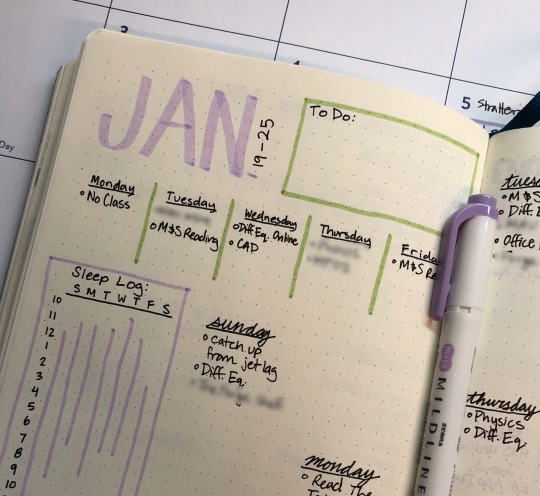 3
4
5
Day
JAN.
19-25
To Do:
Monday
• No Class
Tuesday
• M&S Reading
Wednesday
• Diff Eq. Online
• CAD
Thursday
Friday
• M&S Re
Sleep Log:
S M T W T F S
10
11
12
1
2
3
4
5
6
7
8
9
10
Sunday
• Catch up
from jet lag
• Diff. Eq.
monday
• Read
tuesd
• M&S
• Diff. E
• Office
thursday
• Physics
• Diff. Eq.
ZEBRA
MILDLINE